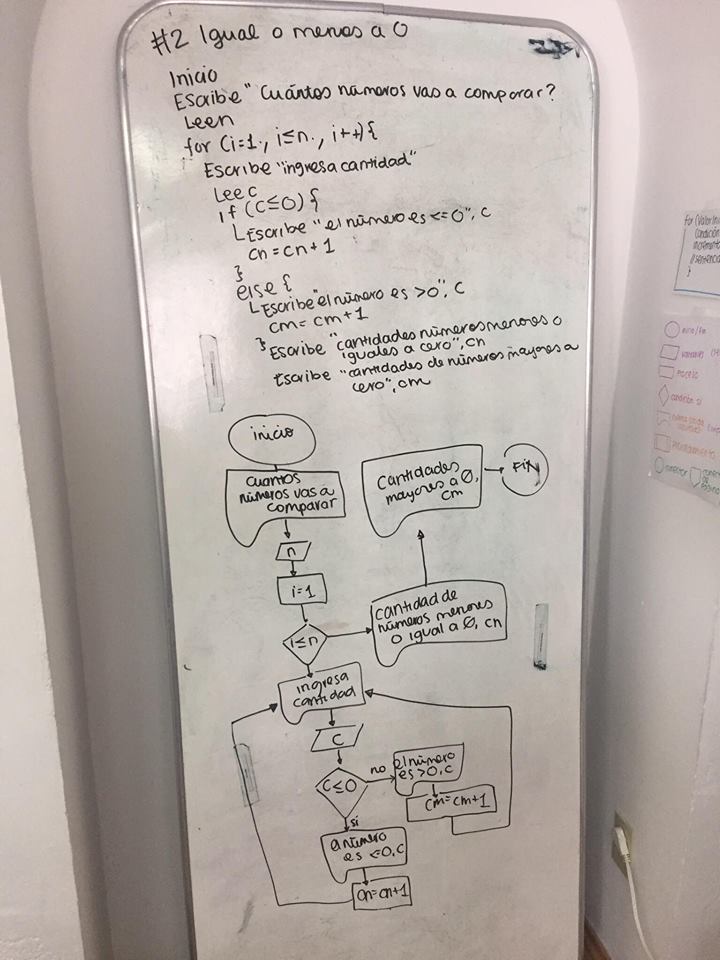 #2 Igual o menos a 0
Inicio
Escribe "Cuántos números vas a comparar?
Lee n
for (i=1., i≤n., i++){
Escribe "ingresa cantidad"
Lee c
if (c≤0) {
Escribe "el número es <=0", c
cn = cn+1
}
else {
Escribe "el número es >0", c
cm = cm+1
}
Escribe "cantidades números menores o
iguales a cero", cn
Escribe "cantidades de números mayores a
cero", cm
inicio
cuantos
números vas a
comparar
n
i=1
i≤n
cantidad de
números menores
o igual a 0, cn
cantidades
mayores a 0,
cm
FIN
ingresa
cantidad
c
c≤0
no
el número
es >0, c
cm=cm+1
si
el número
es <=0, c
cn=cn+1
for (Valor Ini
condición
incremento
//sentencia
}
inicio/fin
variables
proceso
condición si